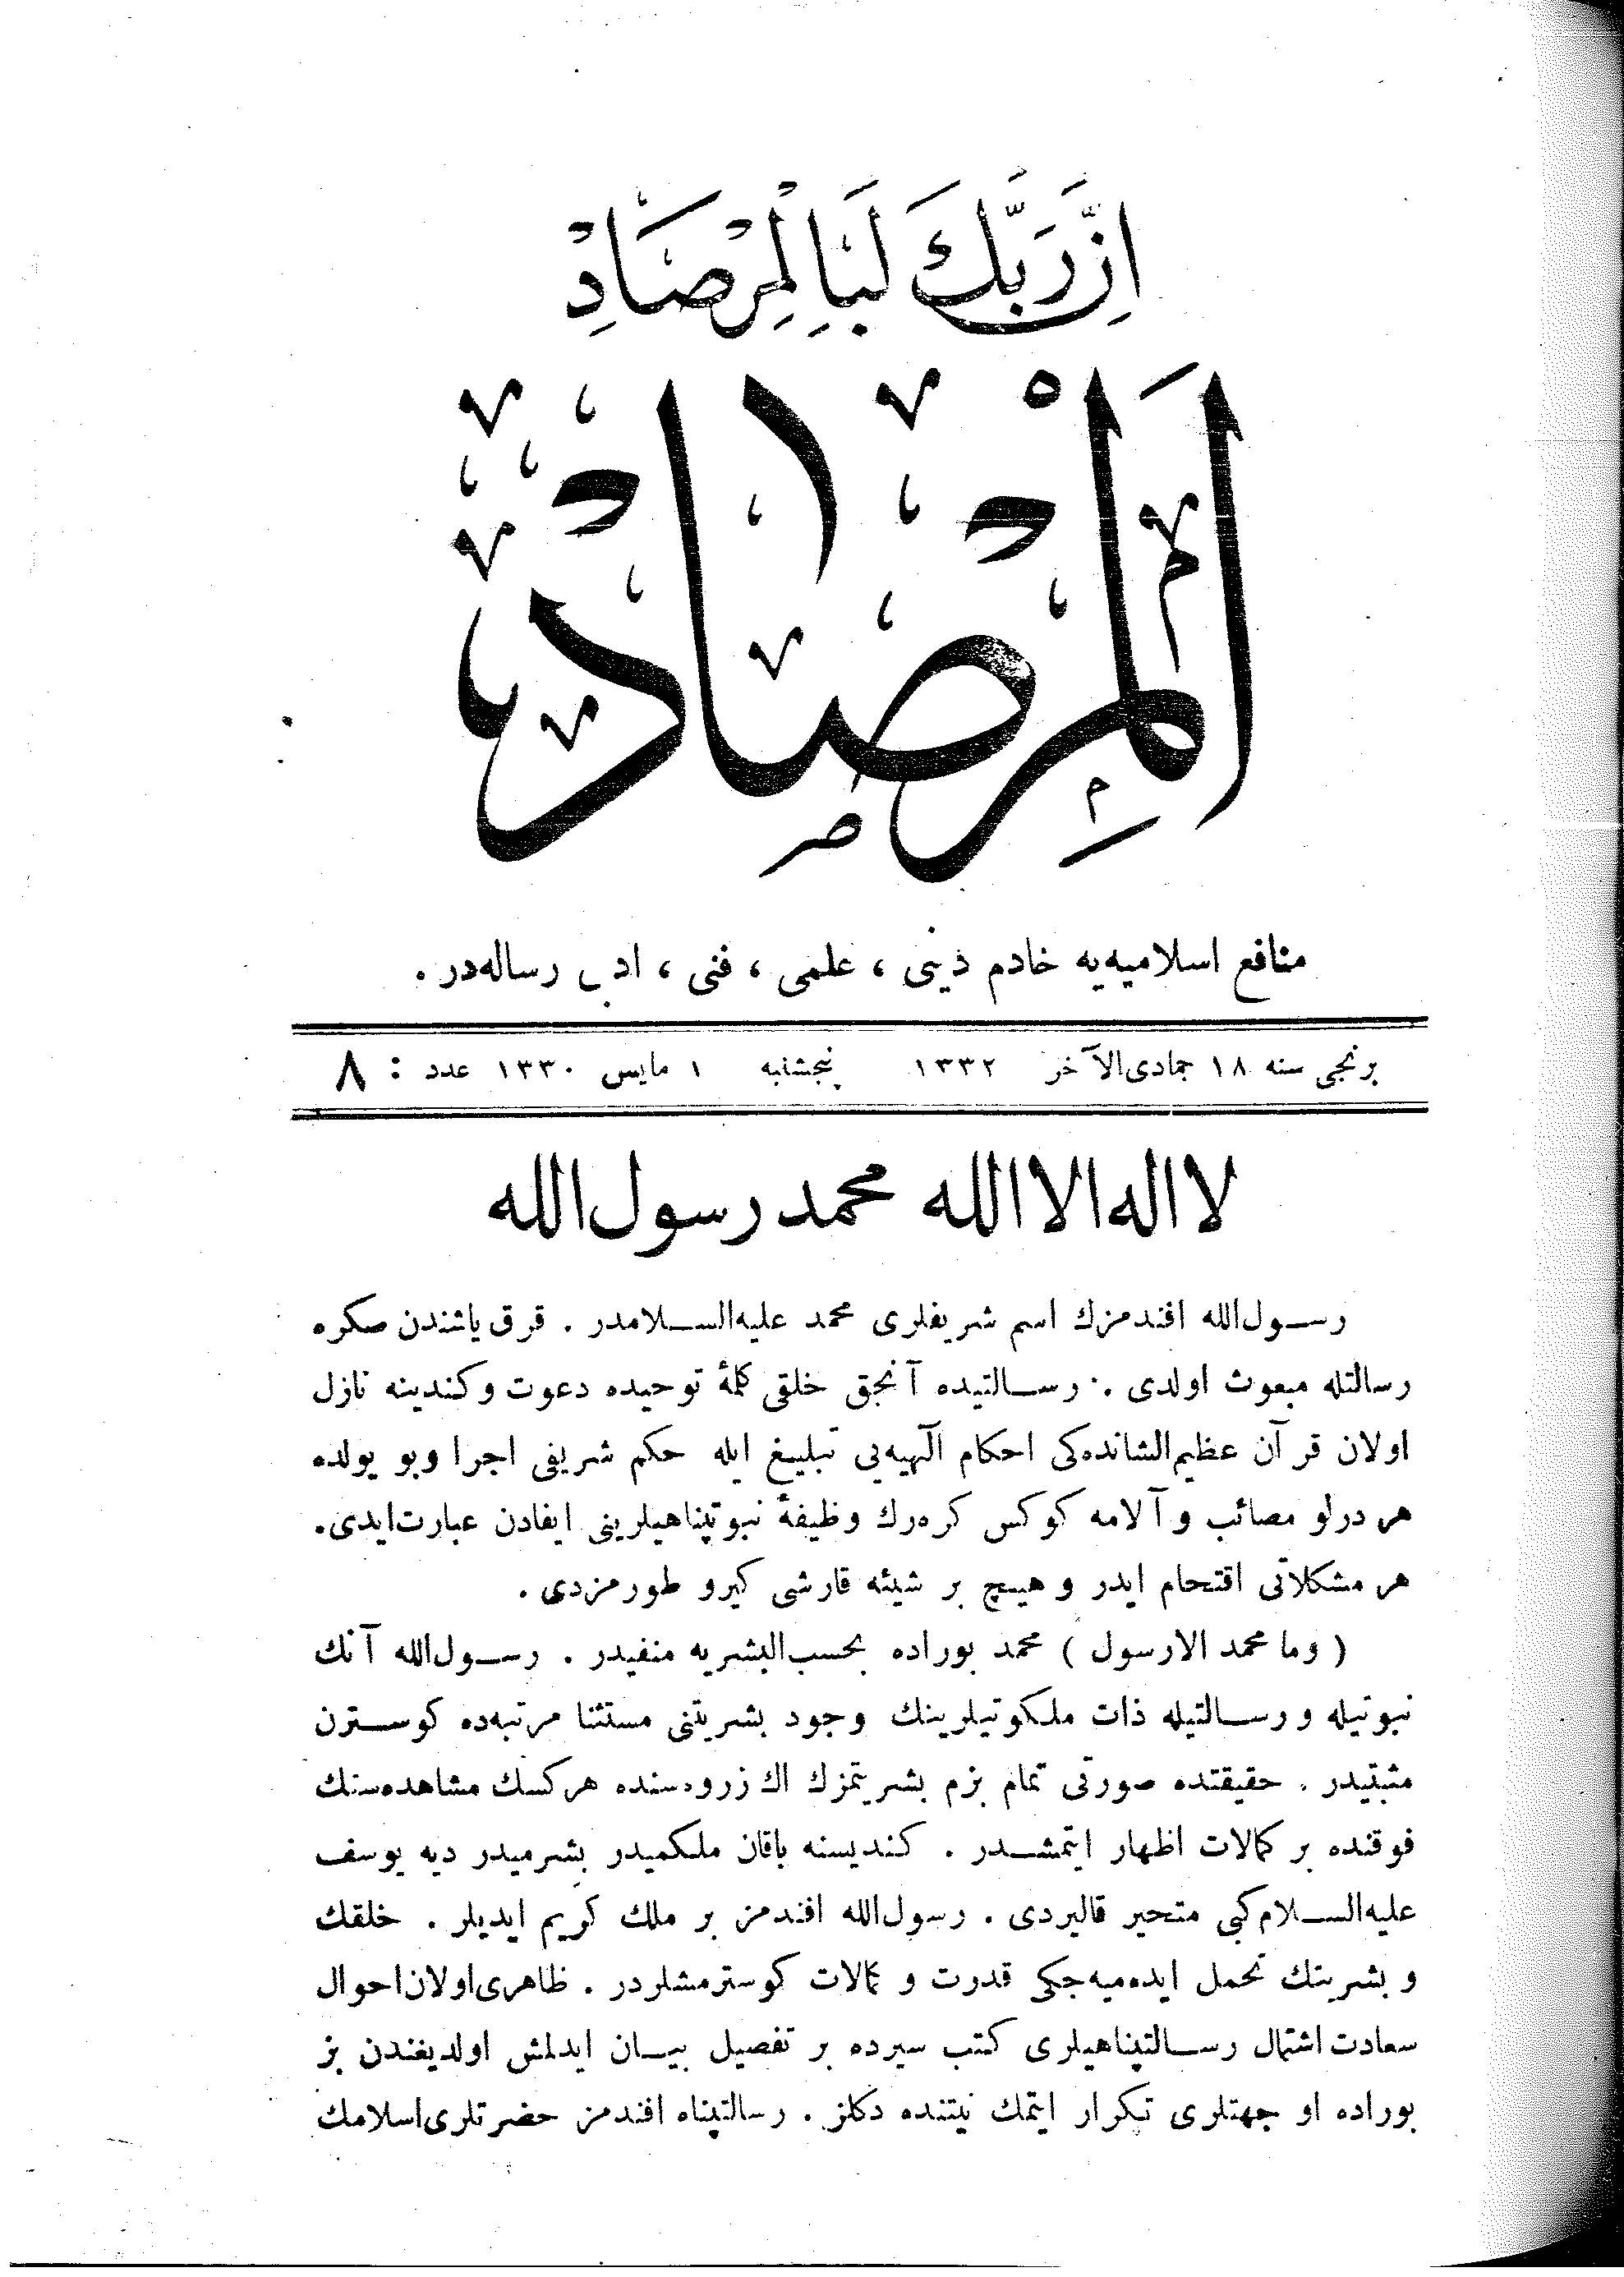 اِنَّ رَبَّكَ لَبِالْمِرْصَادِ
اَلْمِرْصَادْ
منافع اسلاميه‌يه خادم دينى ، علمى ، فنى ، ادبى رساله‌در .
برنجى سنه ١٨ جمادى‌الآخر ١٣٣٢ پنجشنبه ١ مايس ١٣٣٠ عدد : ٨
لا اله الا الله محمد رسول الله
رسول‌الله افندمزك اسم شريفلرى محمد عليه‌السلامدر . قرق ياشندن صكره
رسالتله مبعوث اولدى . رسالتيده آنجق خلقى كلمهٔ توحيده دعوت و كندينه نازل
اولان قرآن عظيم‌الشانده‌كى احكام الٓهيه‌يى تبليغ ايله حكم شريفى اجرا وبو يولده
هر درلو مصائب و آلامه كوكس كره‌رك وظيفهٔ نبوتپناهيلرينى ايفادن عبارت‌ايدى.
هر مشكلاتى اقتحام ايدر و هيچ بر شيئه قارشى كيرو طورمزدى .
( وما محمد الارسول ) محمد بوراده بحسب‌البشريه منفيدر . رسول‌الله آنك
نبوتيله و رسالتيله ذات ملكوتيلرينك وجود بشريتنى مستثنا مرتبه‌ده كوسترن
مثبتيدر . حقيقتده صورتى تمام بزم بشريتمزك اك زروه‌سنده هركسك مشاهده‌سنك
فوقنده بر كمالات اظهار ايتمشدر . كنديسنه باقان ملكميدر بشرميدر ديه يوسف
عليه‌السلام‌كبى متحير قاليردى . رسول‌الله افندمز بر ملك كريم ايديلر . خلقك
و بشريتك تحمل ايده‌ميه‌جكى قدرت و كمالات كوسترمشلردر . ظاهرى‌اولان‌احوال
سعادت‌اشتمال رسالتپناهيلرى كتب سيرده بر تفصيل بيان ايدلمش اولديغندن بز
بوراده او جهتلرى تكرار ايتمك نيتنده دكلز . رسالتپناه افندمز حضرتلرى‌اسلامك